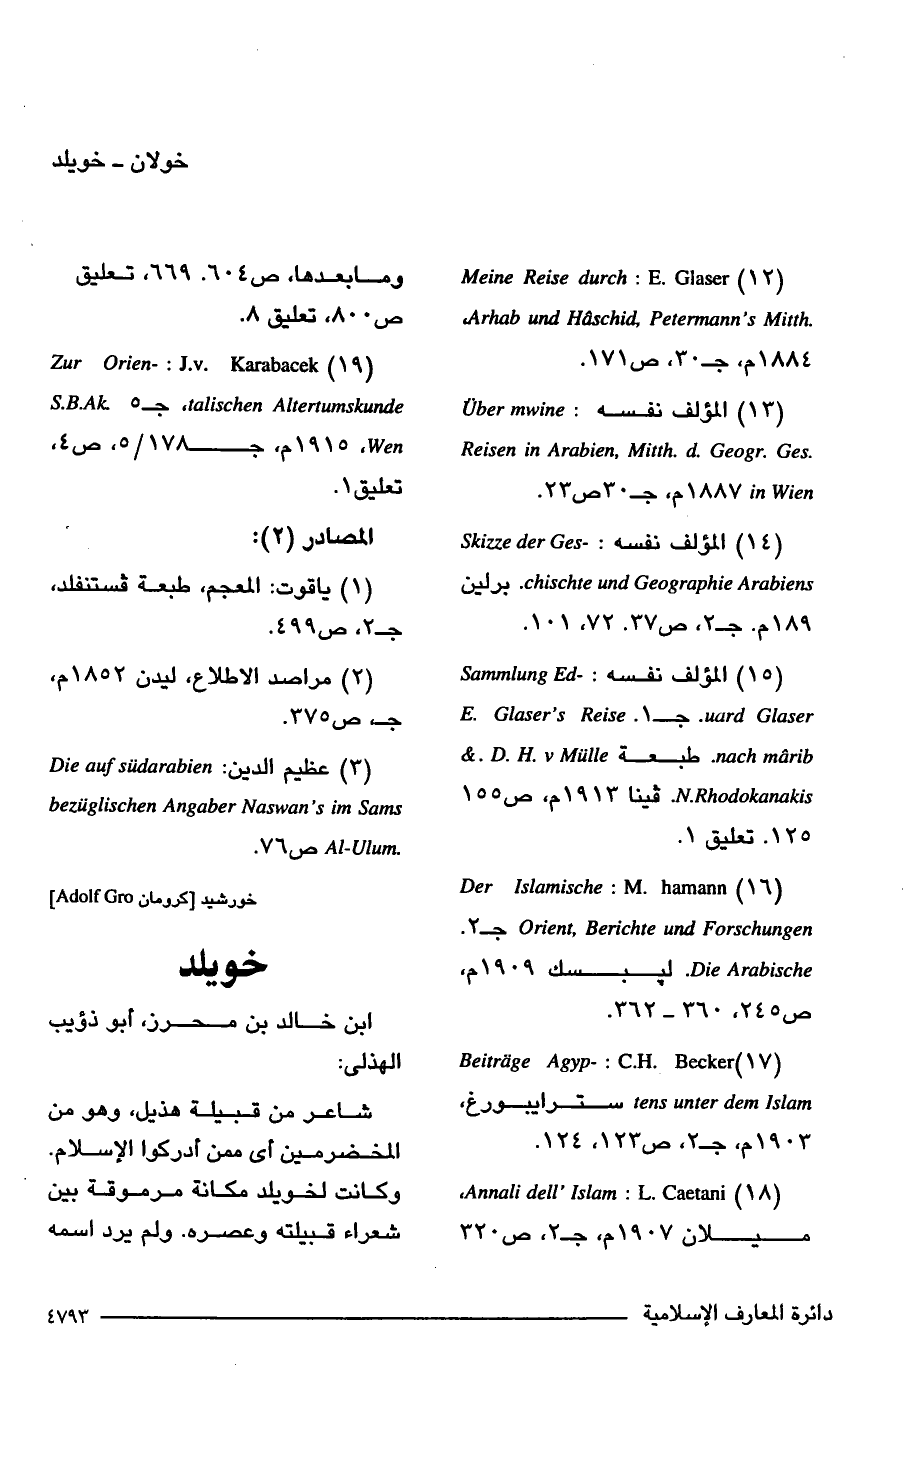 خولان - خويلد
(١٢) Meine Reise durch : E. Glaser
Arhab und Hâschid, Petermann's Mitth.،
١٨٨٤م، جـ٣٠، ص١٧١.
(١٣) المؤلف نفسه : Über mwine
Reisen in Arabien, Mitth. d. Geogr. Ges.
in Wien ١٨٨٧م، جـ٣٠ص٢٣.
(١٤) المؤلف نفسه : Skizze der Ges-
chischte und Geographie Arabiens. برلين
١٨٩م. جـ٢، ص٣٧. ٧٢، ١٠١.
(١٥) المؤلف نفسه : Sammlung Ed-
uard Glaser. جـ١. E. Glaser's Reise
nach mârib. طبعة D. H. v Mülle .&
N.Rhodokanakis. ڤينا ١٩١٣م، ص١٥٥
١٢٥. تعليق ١.
(١٦) Der Islamische : M. hamann
Orient, Berichte und Forschungen جـ٢.
Die Arabische. ليبسك ١٩٠٩م،
ص٢٤٥، ٣٦٠ - ٣٦٢.
(١٧)Beiträge Agyp- : C.H. Becker
tens unter dem Islam ستراببورغ،
١٩٠٣م، جـ٢، ص١٢٣، ١٢٤.
(١٨) Annali dell' Islam : L. Caetani،
ميلان ١٩٠٧م، جـ٢، ص٣٢٠
ومابعدها، ص٦٠٤. ٦٦٩، تعليق
ص٨٠٠، تعليق ٨.
(١٩) Zur Orien- : J.v. Karabacek
talischen Altertumskunde، جـ٥ S.B.Ak.
Wen، ١٩١٥م، جـ٥/١٧٨، ص٤،
تعليق١.
المصادر (٢):
(١) ياقوت: المعجم، طبعة ڤستنفلد،
جـ٢، ص٤٩٩.
(٢) مراصد الاطلاع، ليدن ١٨٥٢م،
جـ، ص٣٧٥.
(٣) عظيم الدين: Die auf südarabien
bezüglischen Angaber Naswan's im Sams
Al-Ulum. ص٧٦.
خورشيد [كرومان Adolf Gro]
خويلد
ابن خالد بن محرز، أبو ذؤيب
الهذلى:
شاعر من قبيلة هذيل، وهو من
المخضرمين أى ممن أدركوا الإسلام.
وكانت لخويلد مكانة مرموقة بين
شعراء قبيلته وعصره. ولم يرد اسمه
دائرة المعارف الإسلامية
٤٧٩٣